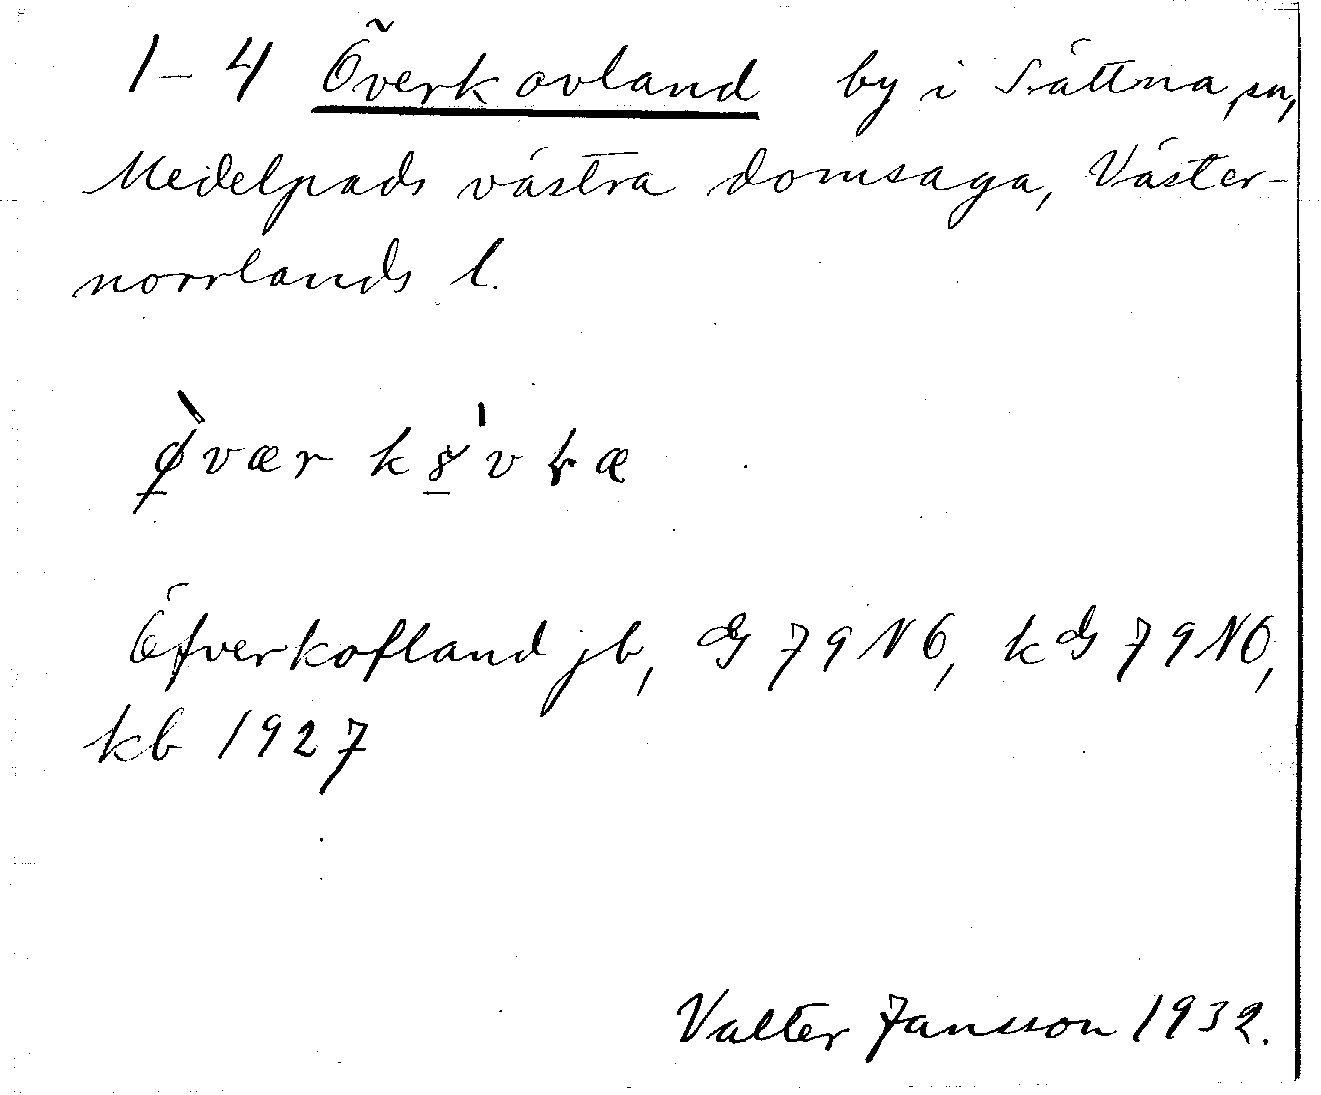 1-4 Överkovland by i Sättna sn,
Medelpads västra domsaga, Väster-
norrlands l.
Öfverkofland jb, G 79 NO, kG 79 NO,
kb 1927
Valter Jansson 1932.